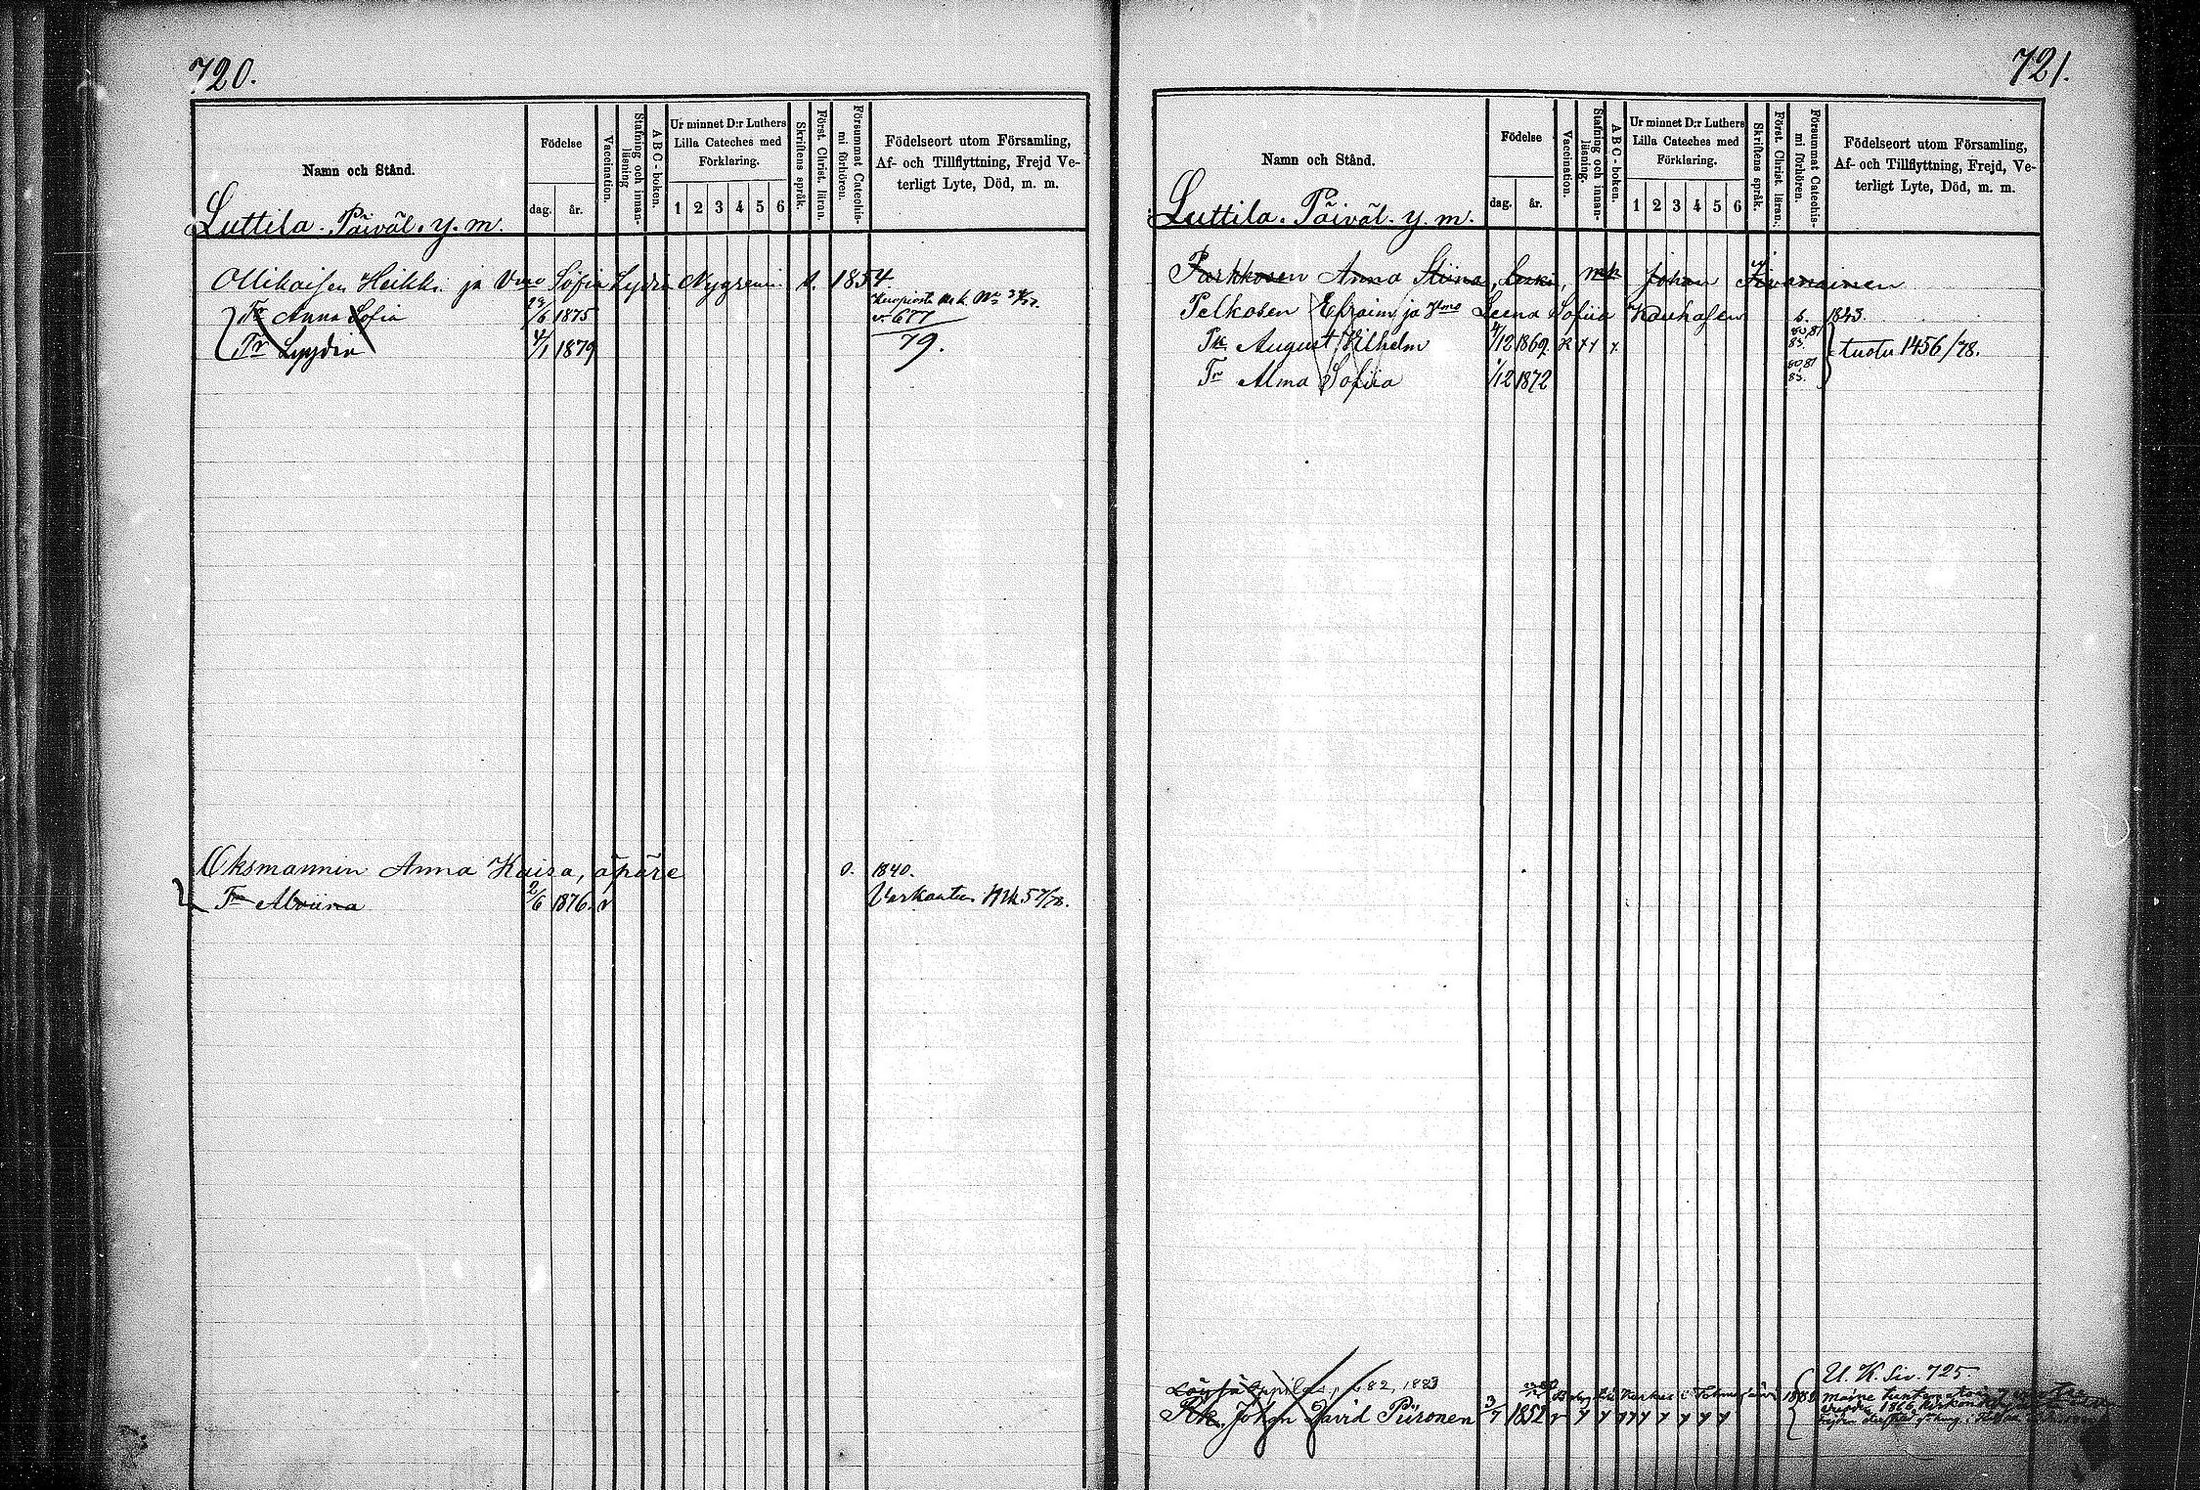 720.
Namn och Stånd.
Födelse
dag.
år.
Vaccination.
Stafning och innan-
läsning
A B C-boken.
Ur minnet D:r Luthers
Lilla Cateches med
Förklaring.
1 2 3 4 5 6
Skriftens språk.
Först. Christ. läran.
Försummat Catechis-
mi förhören.
Födelseort utom Församling,
Af- och Tillflyttning, Frejd Ve-
terligt Lyte, Död, m. m.
Luttila. Päiväl. y. m.
Ollikaisen Heikki ja Vmo Sofia Lydia Nygreni s. 1854.
Tr Anna Sofia 6 1875
v. 677
Tr Lyydia 4/1 1879
79.
Oksmannin Anna Kaisa, äpäre o. 1840.
Tr Alviina 2/6 1876. v Varkauten
721.
Namn och Stånd.
Födelse
dag.
år.
Vaccination.
Stafning och innan-
läsning.
A B C-boken.
Ur minnet D:r Luthers
Lilla Cateches med
Förklaring.
1 2 3 4 5 6
Skriftens språk.
Först. Christ. läran.
Försummat Catechis-
mi förhören.
Födelseort utom Församling,
Af- och Tillflyttning, Frejd, Ve-
terligt Lyte, Död, m. m.
Luttila. Päiväl. y. m.
Parkkosen Anna Stiina, Leski, mk Johan
Pelkosen Efraim ja Vmo Leena Sofiia Kauhasen s. 1843.
Pk August Vilhelm 4/12 1869 80,81 83. tuotu 1456/78.
Tr Alma Sofiia 1/12 1872 80 81 83.
U. K. Siv. 725.
682, 1883
Rk. Johan David Piironen 3/7 1852 v